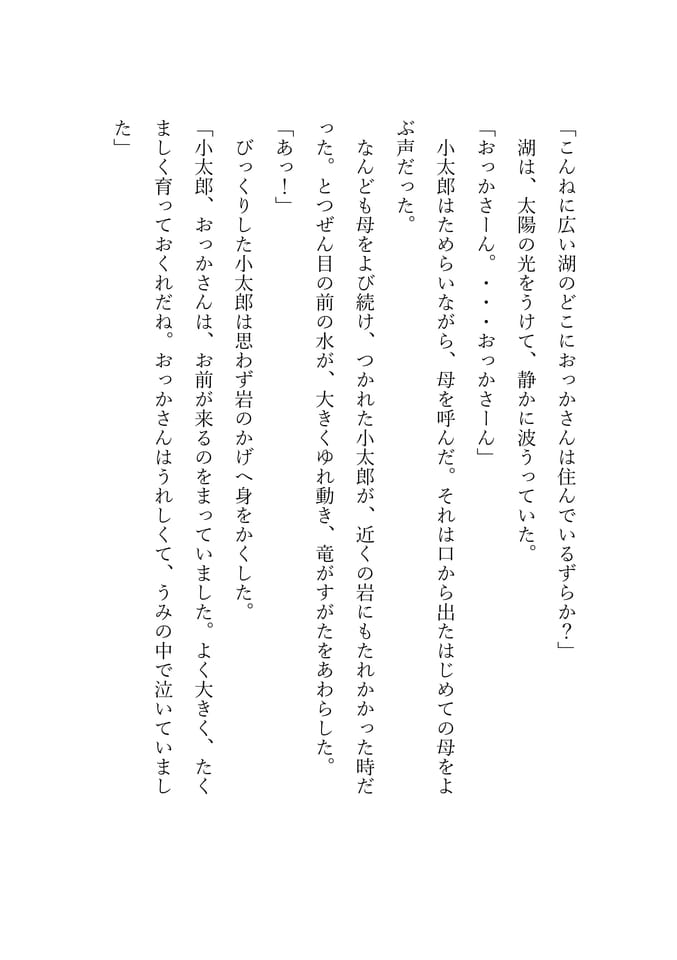 「こんねに広い湖のどこにおっかさんは住んでいるずらか？」
湖は、太陽の光をうけて、静かに波うっていた。
「おっかさーん。・・・おっかさーん」
小太郎はためらいながら、母を呼んだ。それは口から出たはじめての母をよ
ぶ声だった。
なんども母をよび続け、つかれた小太郎が、近くの岩にもたれかかった時だ
った。とつぜん目の前の水が、大きくゆれ動き、竜がすがたをあわらした。
「あっ！」
びっくりした小太郎は思わず岩のかげへ身をかくした。
「小太郎、おっかさんは、お前が来るのをまっていました。よく大きく、たく
ましく育っておくれだね。おっかさんはうれしくて、うみの中で泣いていまし
た」